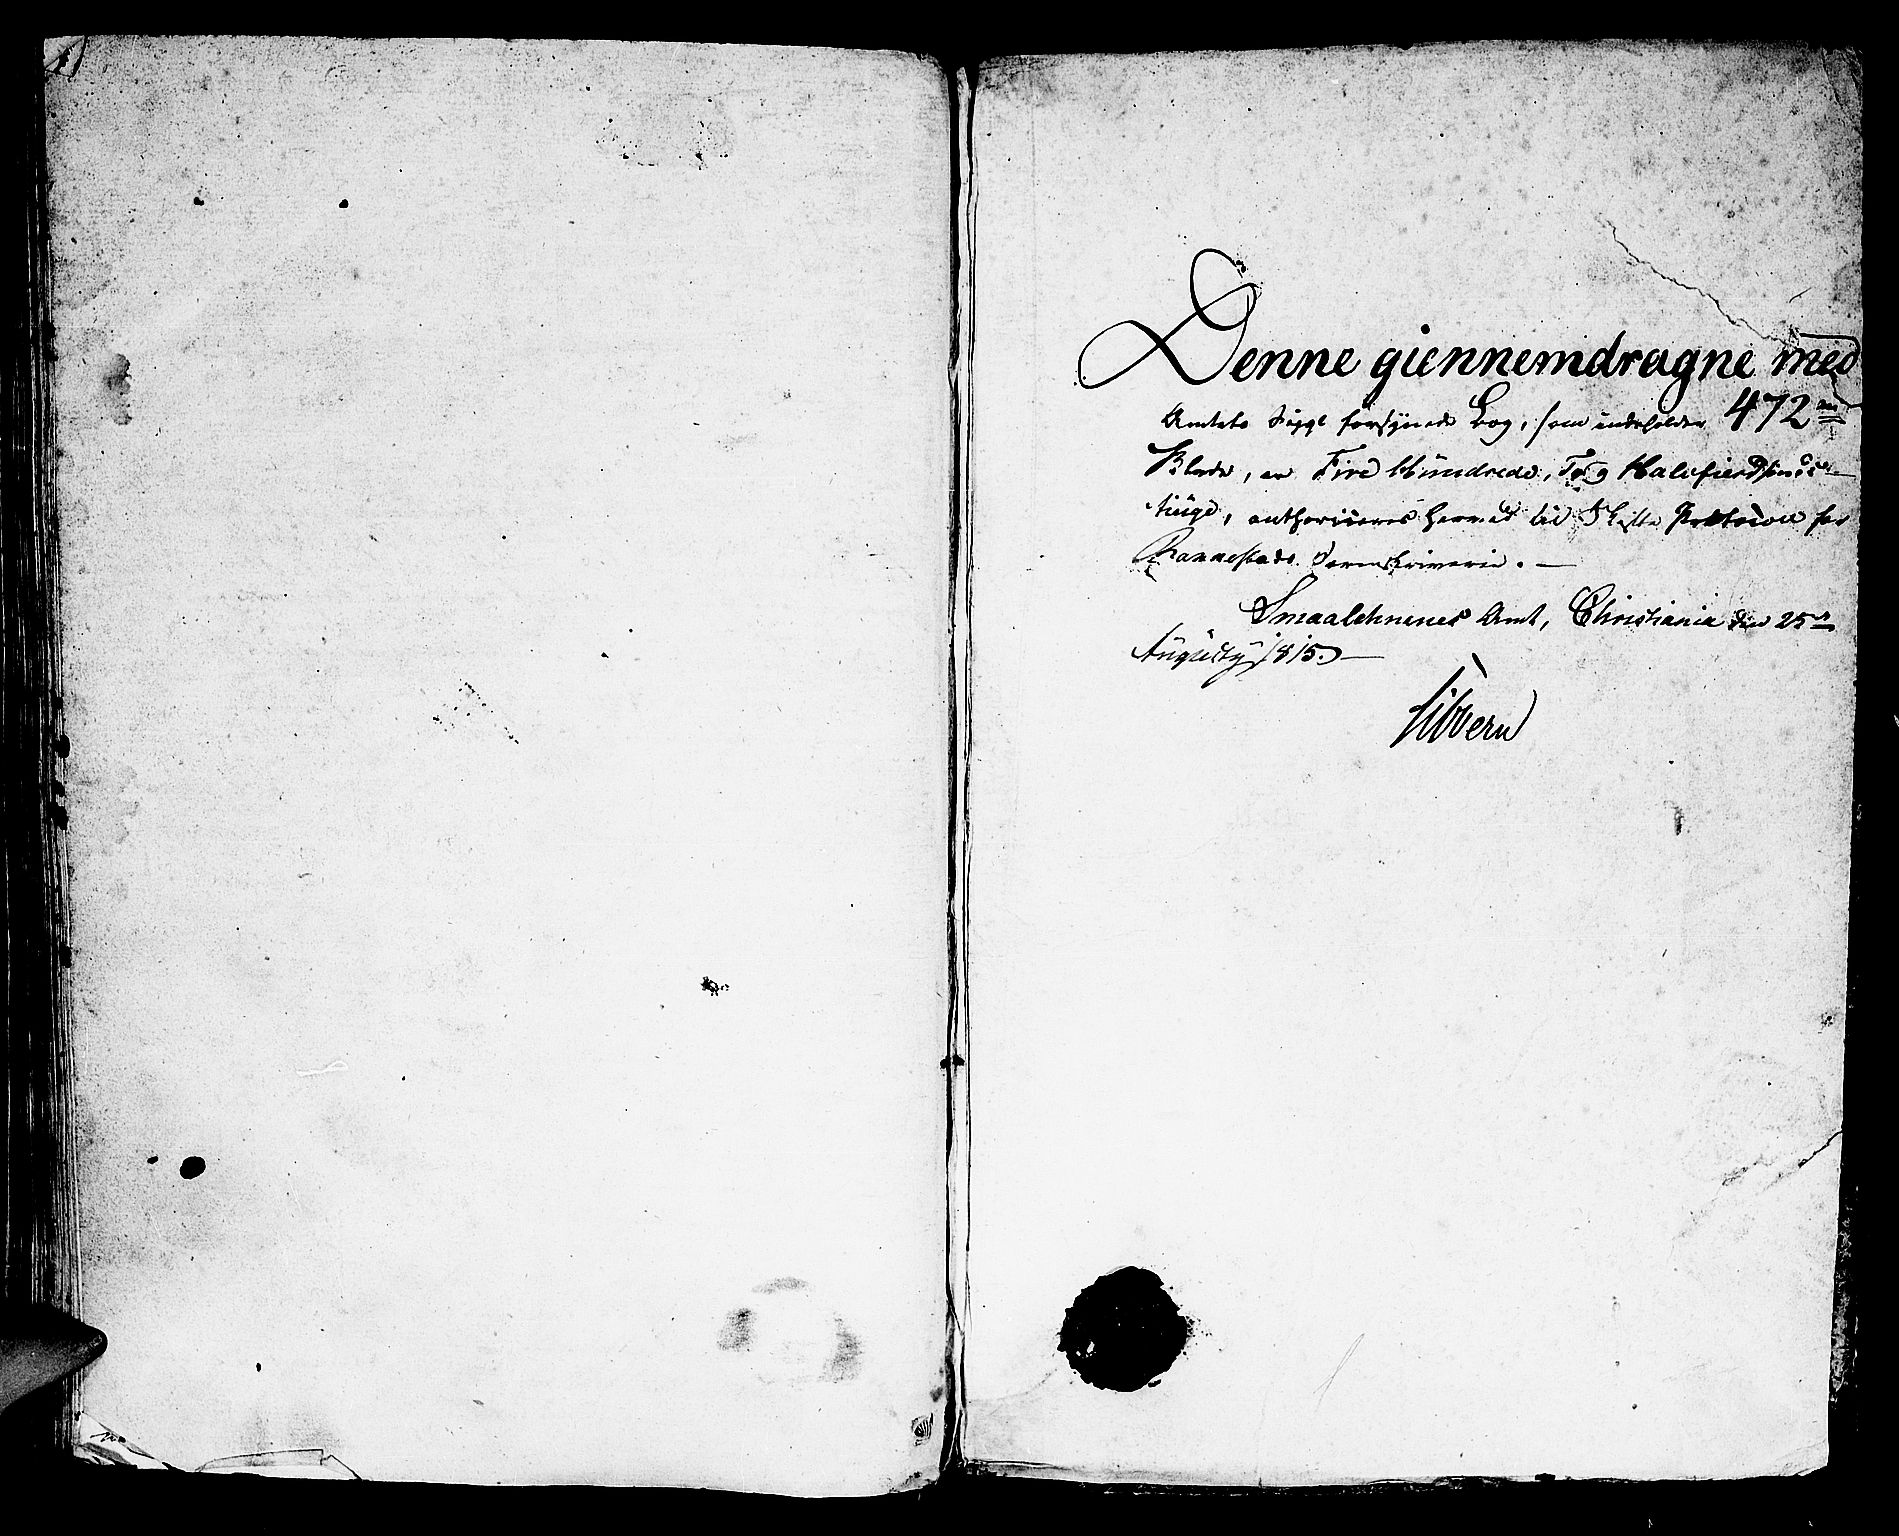 Denne giennemdragne med
Amtets Seigl forsynede Bog, som indeholder 472
Blade, er Fire Hundrede, To og Halvfierdsinds-
tiuge, authoriseres hermed til Skifte Protocol for
Sorenskriverie. —
Smaalehnenes Amt, Christiania den 25
Augusty 1815. —
Sibbern